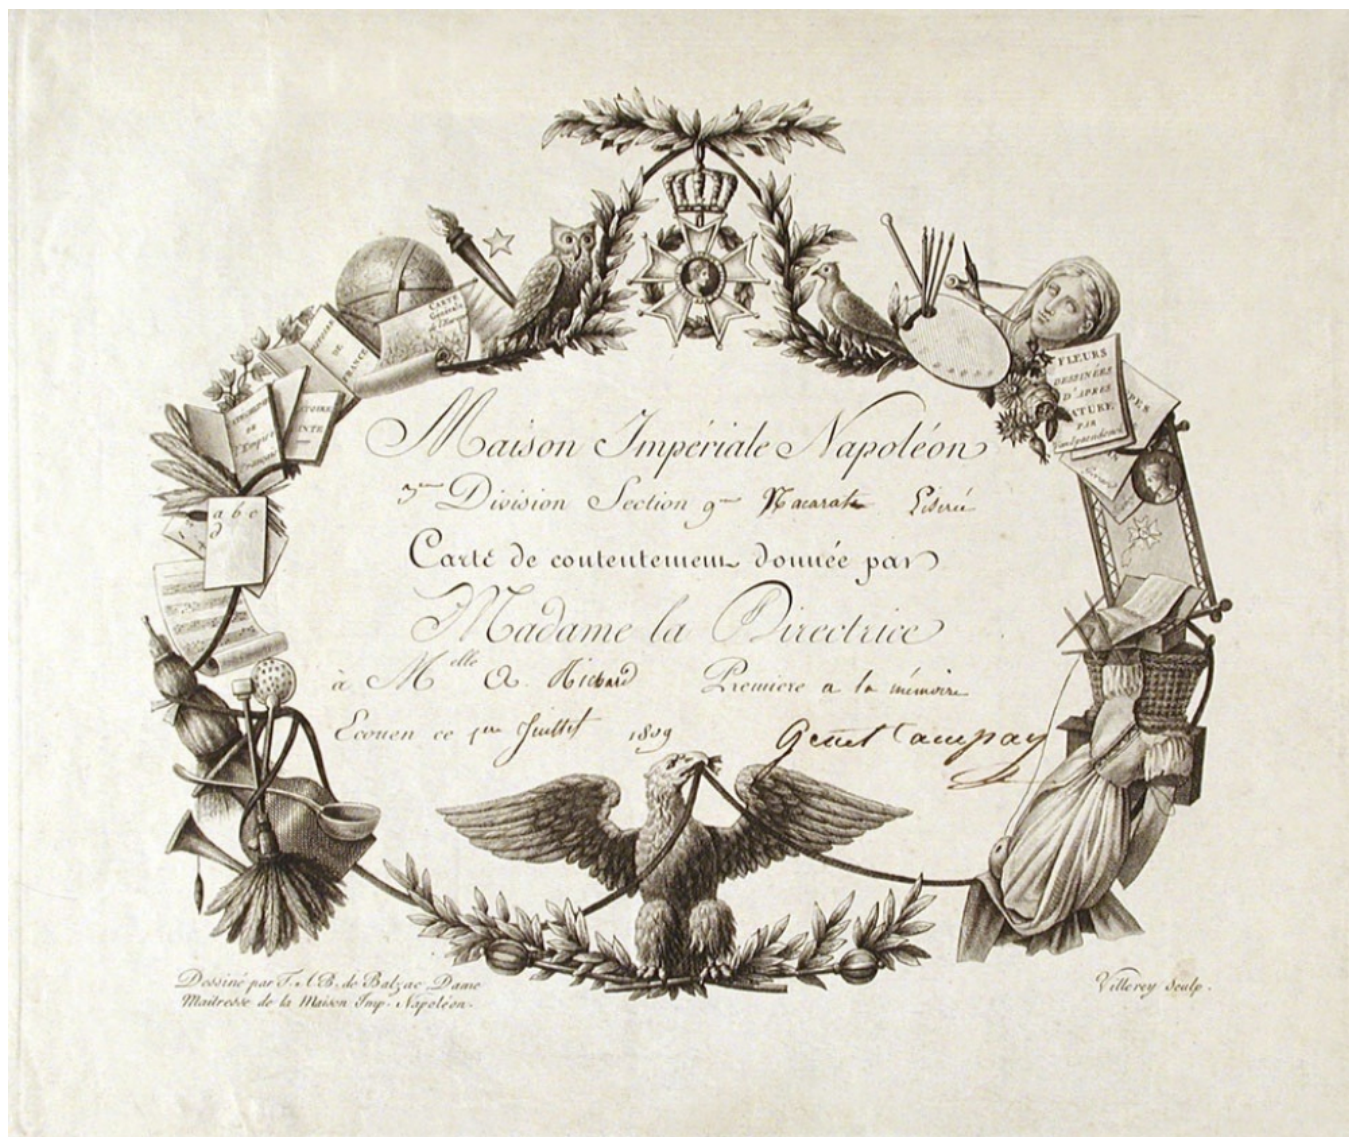 CARTE
Générale
HISTOIRE
DE
FRANCE
DE
l'Empire
a b c
d
FLEURS
DESSINÉES
D'APRÈS
NATURE
PAR
Vanspaendonck
Maison Impériale Napoléon
3me Division Section 9me Nacarate Liseré
Carte de contentement donnée par
Madame la Directrice
à Melle A. Richard Premiere a la mémoire
Ecouen ce 1er Juillet 1809 Genet Campan
Dessiné par T. A. B. de Balzac Dame
Maitresse de la Maison Imp. Napoléon.
Villerey Sculp.